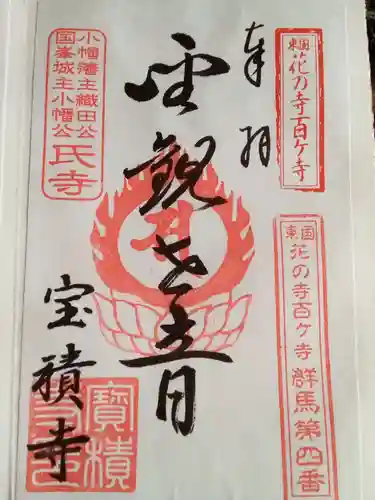 東国花の寺百ヶ寺
奉拝
東国花の寺百ヶ寺 群馬第四番
聖観世音
小幡藩主織田公
国峯城主小幡公
氏寺
宝積寺
寶積寺